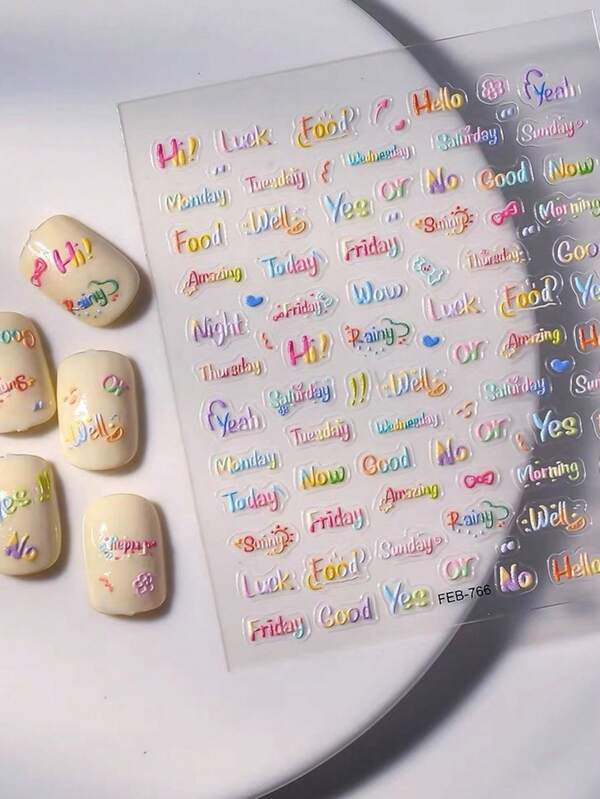 Hi! Luck Food Hello Yeah
Monday Tuesday Wednesday Saturday Sunday
Food Well Yes or No Good Now
Amazing Today Friday Sunny Morning
Night Friday Wow Thursday Goo
Thursday Hi! Rainy Luck Food Ye
Yeah Saturday !! Well or Amazing Hi
Monday Tuesday Wednesday Saturday Sun
Today Now Good No or Yes
Sunny Friday Amazing Morning
Luck Food Sunday Rainy Well
Friday Good Yes or No Hello
FEB-766
Hi!
Rainy
Good
Sunny
Or
Well
Yes !!
No